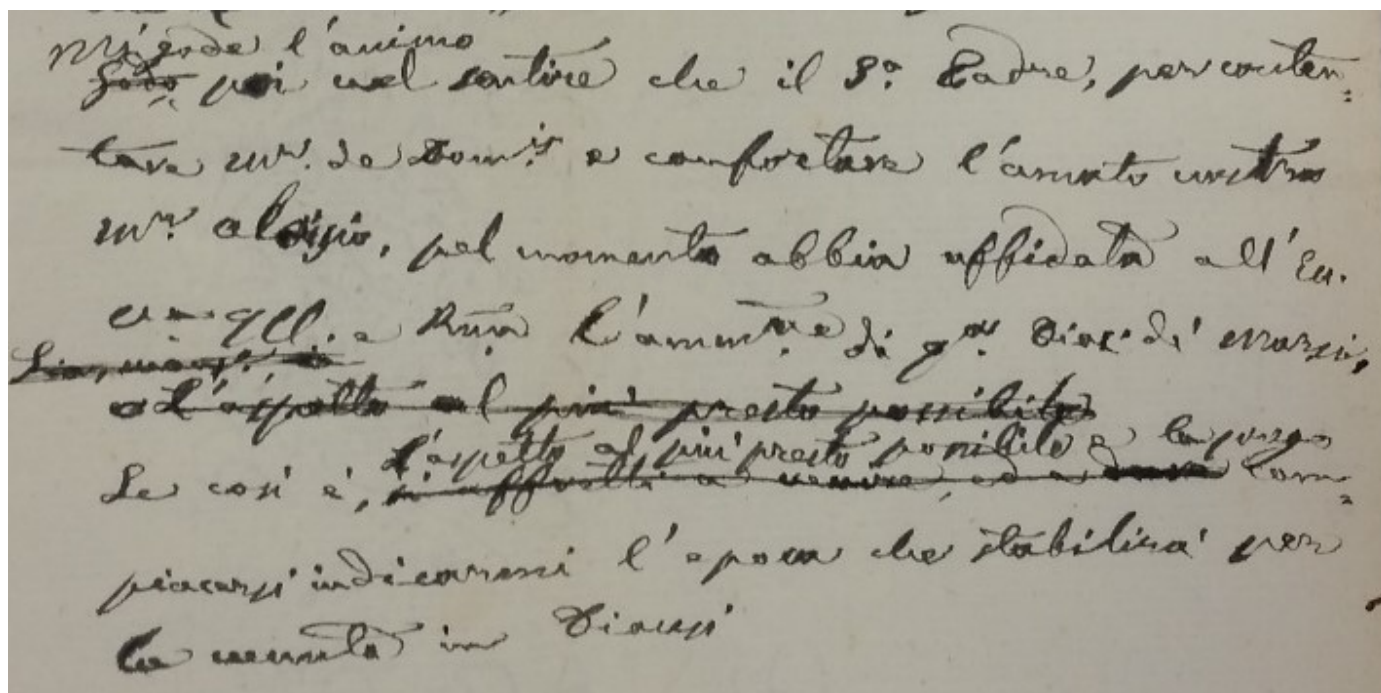 Mi gode l'animo
Godo poi nel sentire che il S.o Padre, per conten=
tare Mr. de Dom.is e confortare l'amato nostro
Mr. Aloisio, pel momento abbia affidata all'Ec.
e Rma l'ammne di Dioc. di' Marsi,
e L'aspetto al più presto possibile
L'aspetto al più presto possibile e la prego
Se così è, si affretti a venire, ed a com=
piacersi indicarmi l'epoca che stabilirà per
la venuta in Diocesi